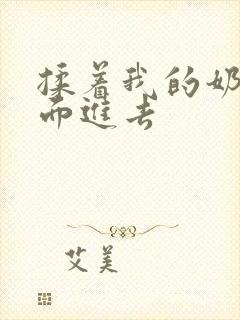 揉着我的奶
而进去
艾美